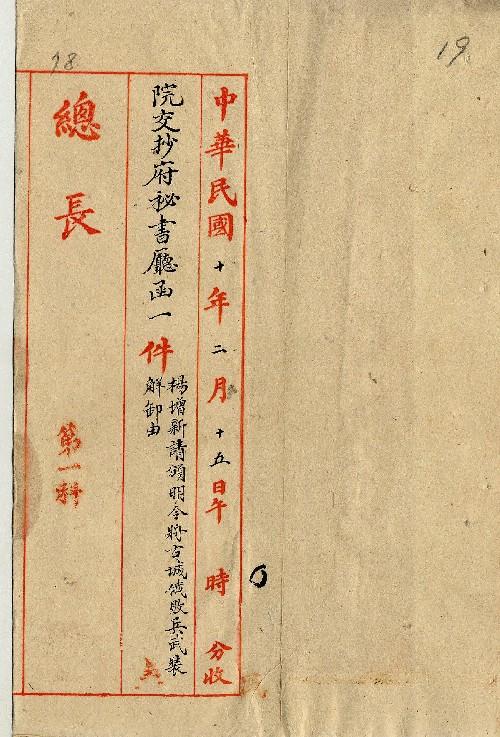 19
中華民國十年二月十五日午 時 分收
院交抄府祕書廳函一件
楊增新請頒明令將古城俄敗兵武裝
解卸由
總長 第一科
18